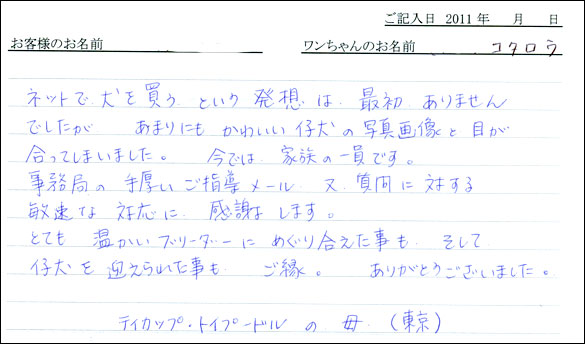 ご記入日 2011 年 月 日
お客様のお名前 ワンちゃんのお名前 コタロウ
ネットで 犬を買う という 発想 は 最初 ありません
でしたが あまりにも かわいい 仔犬 の 写真画像と 目が
合ってしまいました。 今では 家族の一員です。
事務局の 手厚い ご指導メール 又 質問 に 対する
敏速な 対応に 感謝 します。
とても 温かい ブリーダー に めぐり合えた事も そして
仔犬を 迎えられた事も ご縁。 ありがとうございました。
ティカップ・トイプードル の 母 (東京)